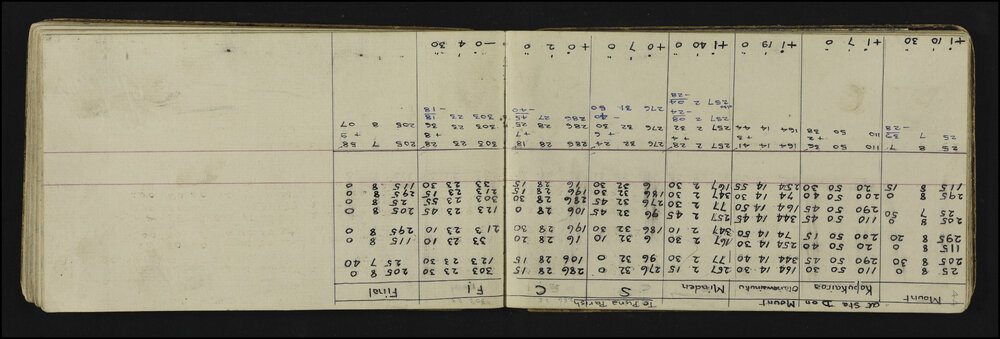 at Sta D on Mount Te Puna Parish
Mount Kopukairoa Otanewainuku Minden S C F1 Final
25 8 0 110 50 30 164 14 30 257 2 15 276 32 0 286 28 15 303 23 30 205 8 0
205 8 30 290 50 45 344 14 40 77 2 30 96 32 0 106 28 15 123 23 30 25 7 40
115 8 0 20 50 40 254 14 30 167 2 30 6 32 10 16 28 20 33 23 10 115 8 0
295 8 20 200 50 15 74 14 50 347 2 10 186 32 30 196 28 30 213 23 10 295 8 0
205 8 0 110 50 45 344 14 45 257 2 45 96 32 45 106 28 0 123 23 45 205 8 0
25 7 50 290 50 45 164 14 50 77 2 30 276 32 45 286 28 30 303 23 55 25 8 0
295 8 0 200 50 40 74 14 30 347 2 30 186 32 30 196 28 15 213 23 15 295 8 0
115 8 15 20 50 30 254 14 55 167 2 30 6 32 30 16 28 15 33 23 30 115 8 0
25 8 7 110 50 36 164 14 41 257 2 28 276 32 24 286 28 18 303 23 28 205 7 58
+2 +3 +4 +6 +7 +8 +9
25 7 39 110 50 38 164 14 44 257 2 32 276 32 30 286 28 25 303 23 36 205 8 07
-28 -24 -40 -40 -18
276 31 50 286 27 45 303 23 18
257 2 04
-28
+1 10 30 +1 7 0 +1 19 0 +1 40 0 +0 7 0 +0 2 0 -0 4 30